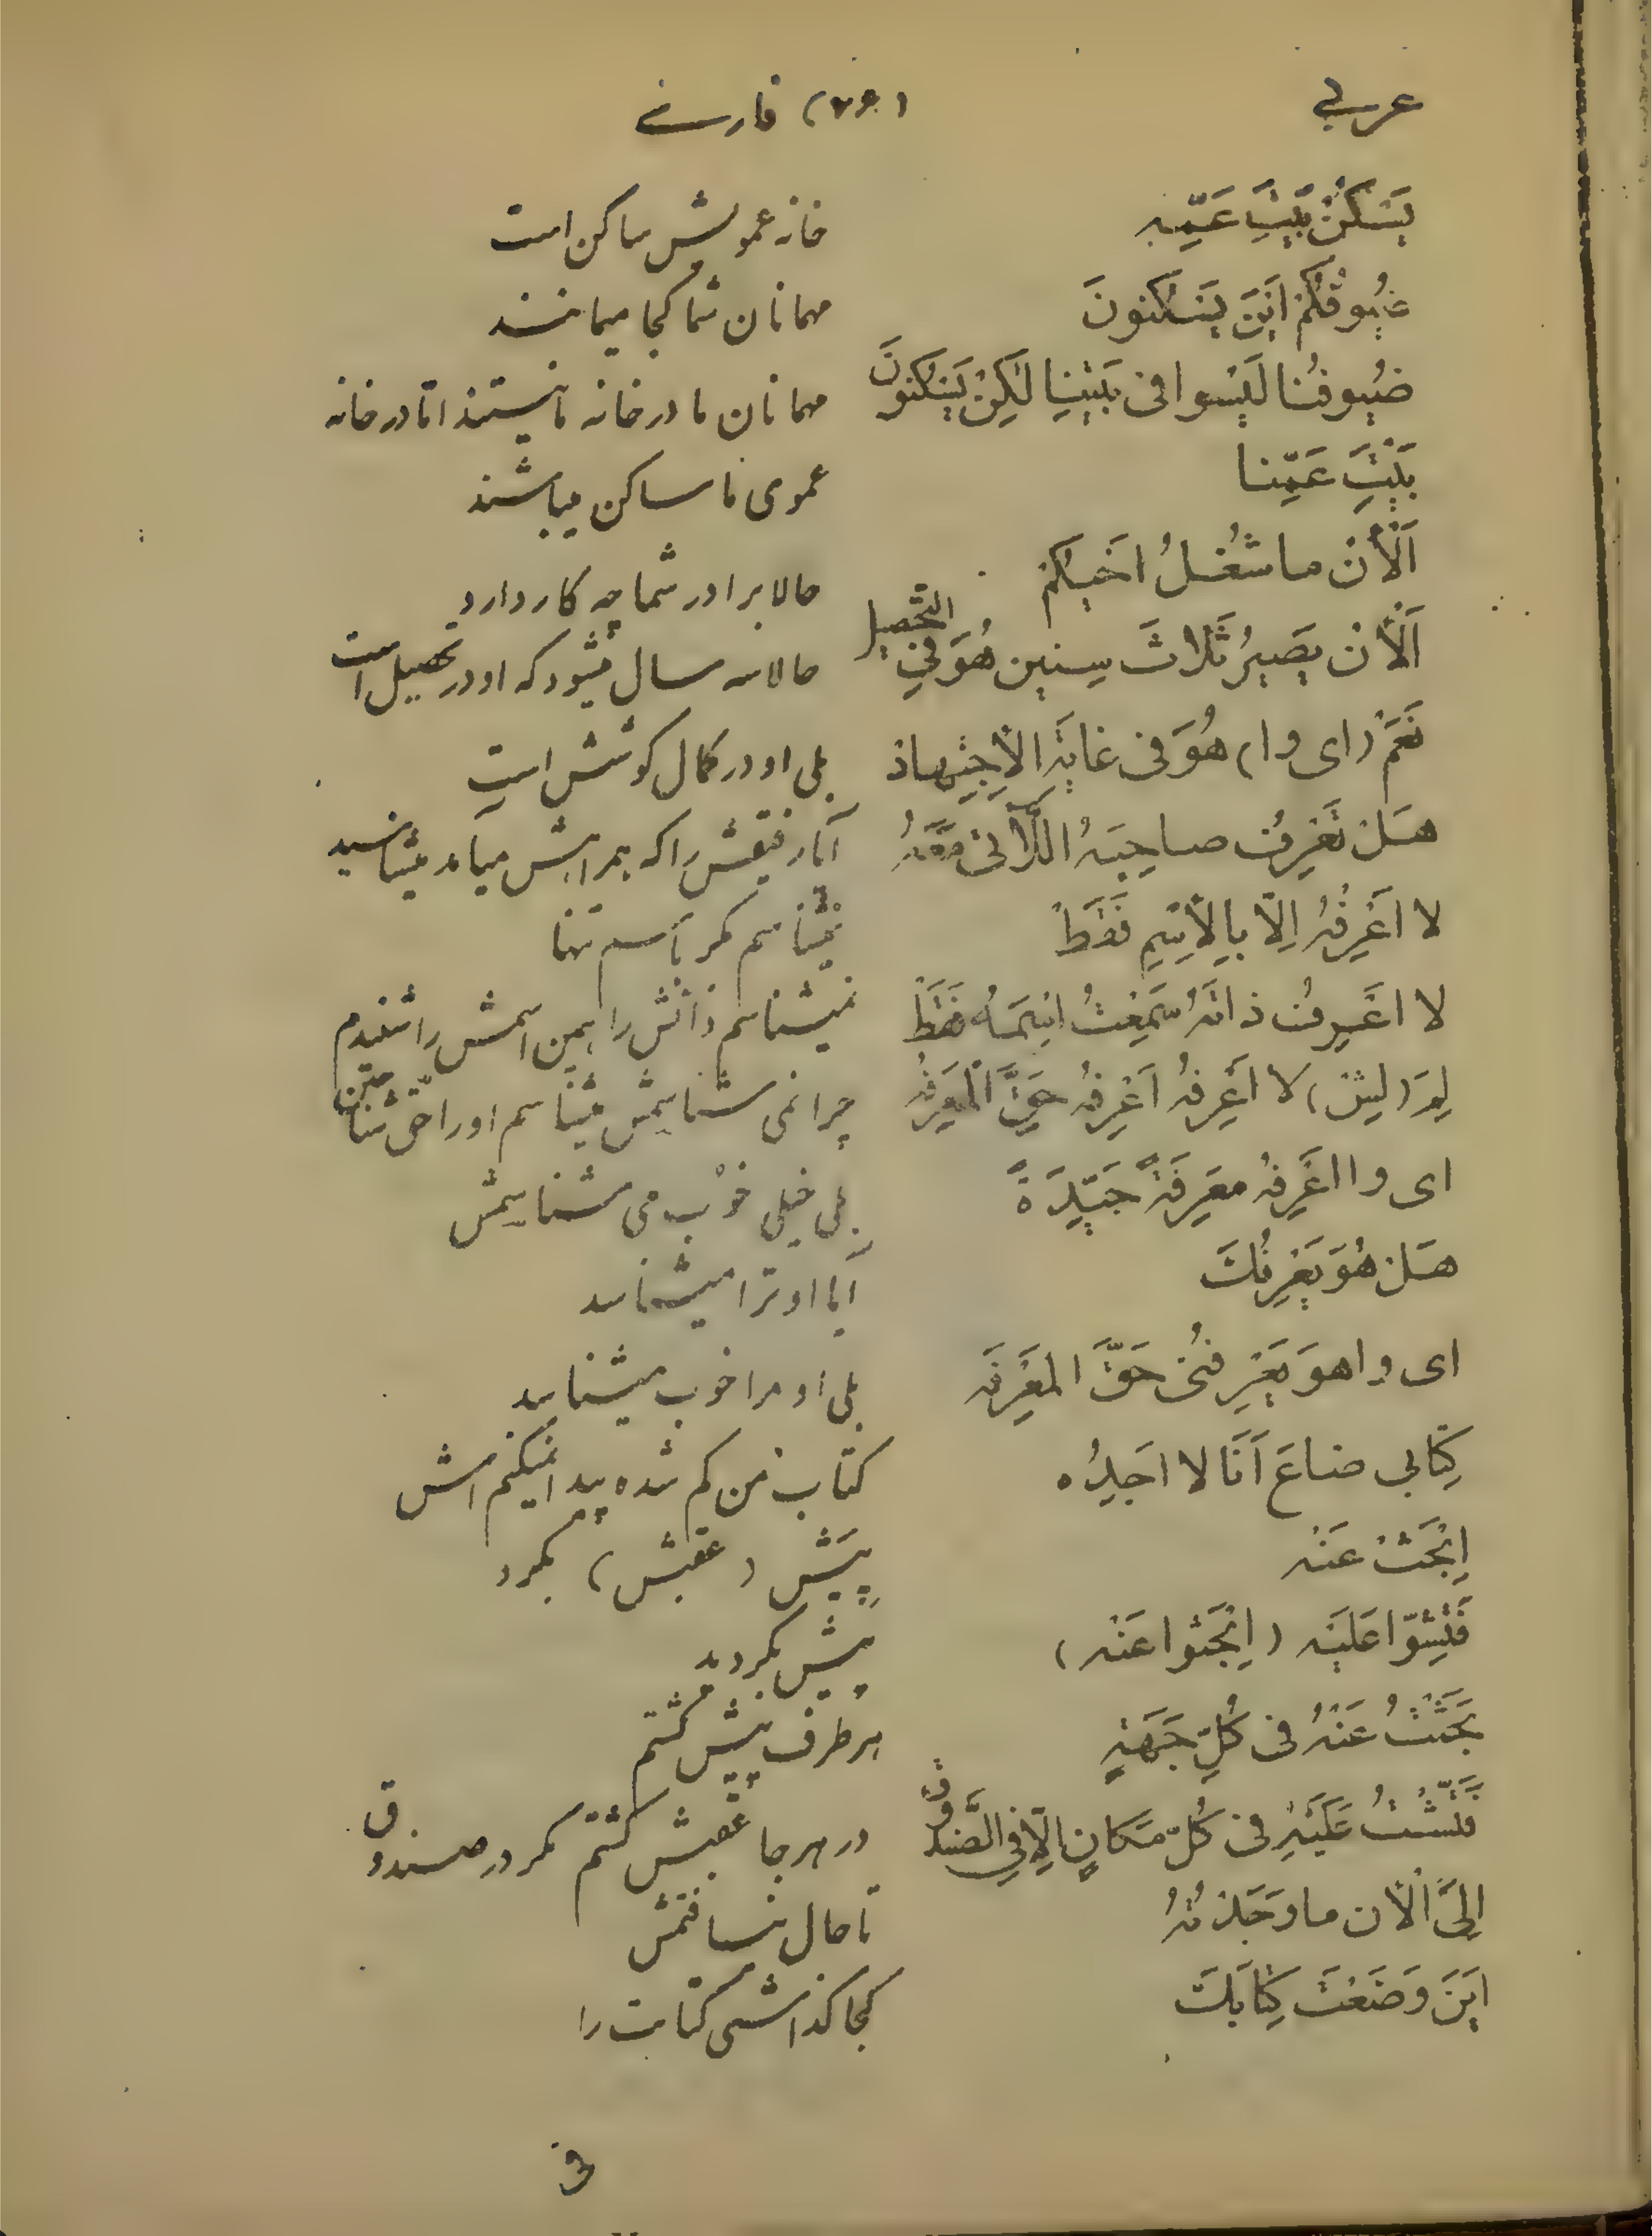 عربي (۷۶) فارسے
يَسْكُنُ بَيْتَ عَمِّهِ خانه عمویش ساکن است
ضُيُوفُكُمْ اَيْنَ يَسْكُنُونَ مهمانان شما کجا میمانند
ضُيُوفُنا لَيْسُوا فى بَيْتِنا لٰكِنْ يَسْكُنُونَ مهمانان ما در خانه ما نیستند امّا در خانه
بَيْتَ عَمِّنا عموی ما ساکن میباشند
اَلْأنْ ما شُغْلُ اَخيكُمْ حالا برادر شما چه کار دارد
اَلْأنْ يَصيرُ ثَلاثَ سِنين هُوَ فِى التَّحْصيل حالا سه سال میشود که او در تحصیل است
نَعَمْ (اى وا) هُوَ فى غايَةِ الْاِجْتِهاد بلی او در کمال کوشش است
هَلْ تَعْرِفُ صاحِبَهُ الَّاتى مَعَهُ آیا رفیقش را که همراهش میآمد میشناسید
لا اَعْرِفُهُ اِلّا بِالْاِسْمِ فَقَطْ نمیشناسم مگر بأسم تنها
لا اَعْرِفُ ذاتَهُ سَمِعْتُ اِسْمَهُ فَقَطْ نمیشناسم ذاتش را همین اسمش را شنیدم
لِمَ (ليش) لا اَعْرِفُهُ اَعْرِفُهُ حَقَّ الْمَعْرِفَه چرا نمی شناسمش میشناسم او را حقّ شناختن
اى وا اَعْرِفُهُ مَعْرِفَةً جَيِّدَةً بلی خیلی خوب می شناسمش
هَلْ هُوَ يَعْرِفُكَ آیا او ترا میشناسد
اى وا هوَ يَعْرِفُنى حَقَّ الْمَعْرِفَه بلی او مرا خوب میشناسد
كِتابي ضاعَ اَنَا لا اَجِدُه کتاب من کم شده پیدا نمیکنم اش
اِبْحَثْ عَنْه پیش (عقبش) بگرد
فَتِّشوُا عَلَيْه (اِبْحَثوا عَنْه) پیش بگردید
بَحَثْتُ عَنْهُ فى كُلِّ جَهَةٍ هر طرف پیش گشتم
فَتَّشْتُ عَلَيْهِ فى كُلِّ مَكانٍ اِلّا فِى الصَّندُوق در هر جا عقبش گشتم مگر در صندوق
اِلَى الْأن ما وَجَدْتُهُ تا حال نیافتمش
اَيْنَ وَضَعْتَ كِتابَكَ کجا گذاشتی کتابت را
فى